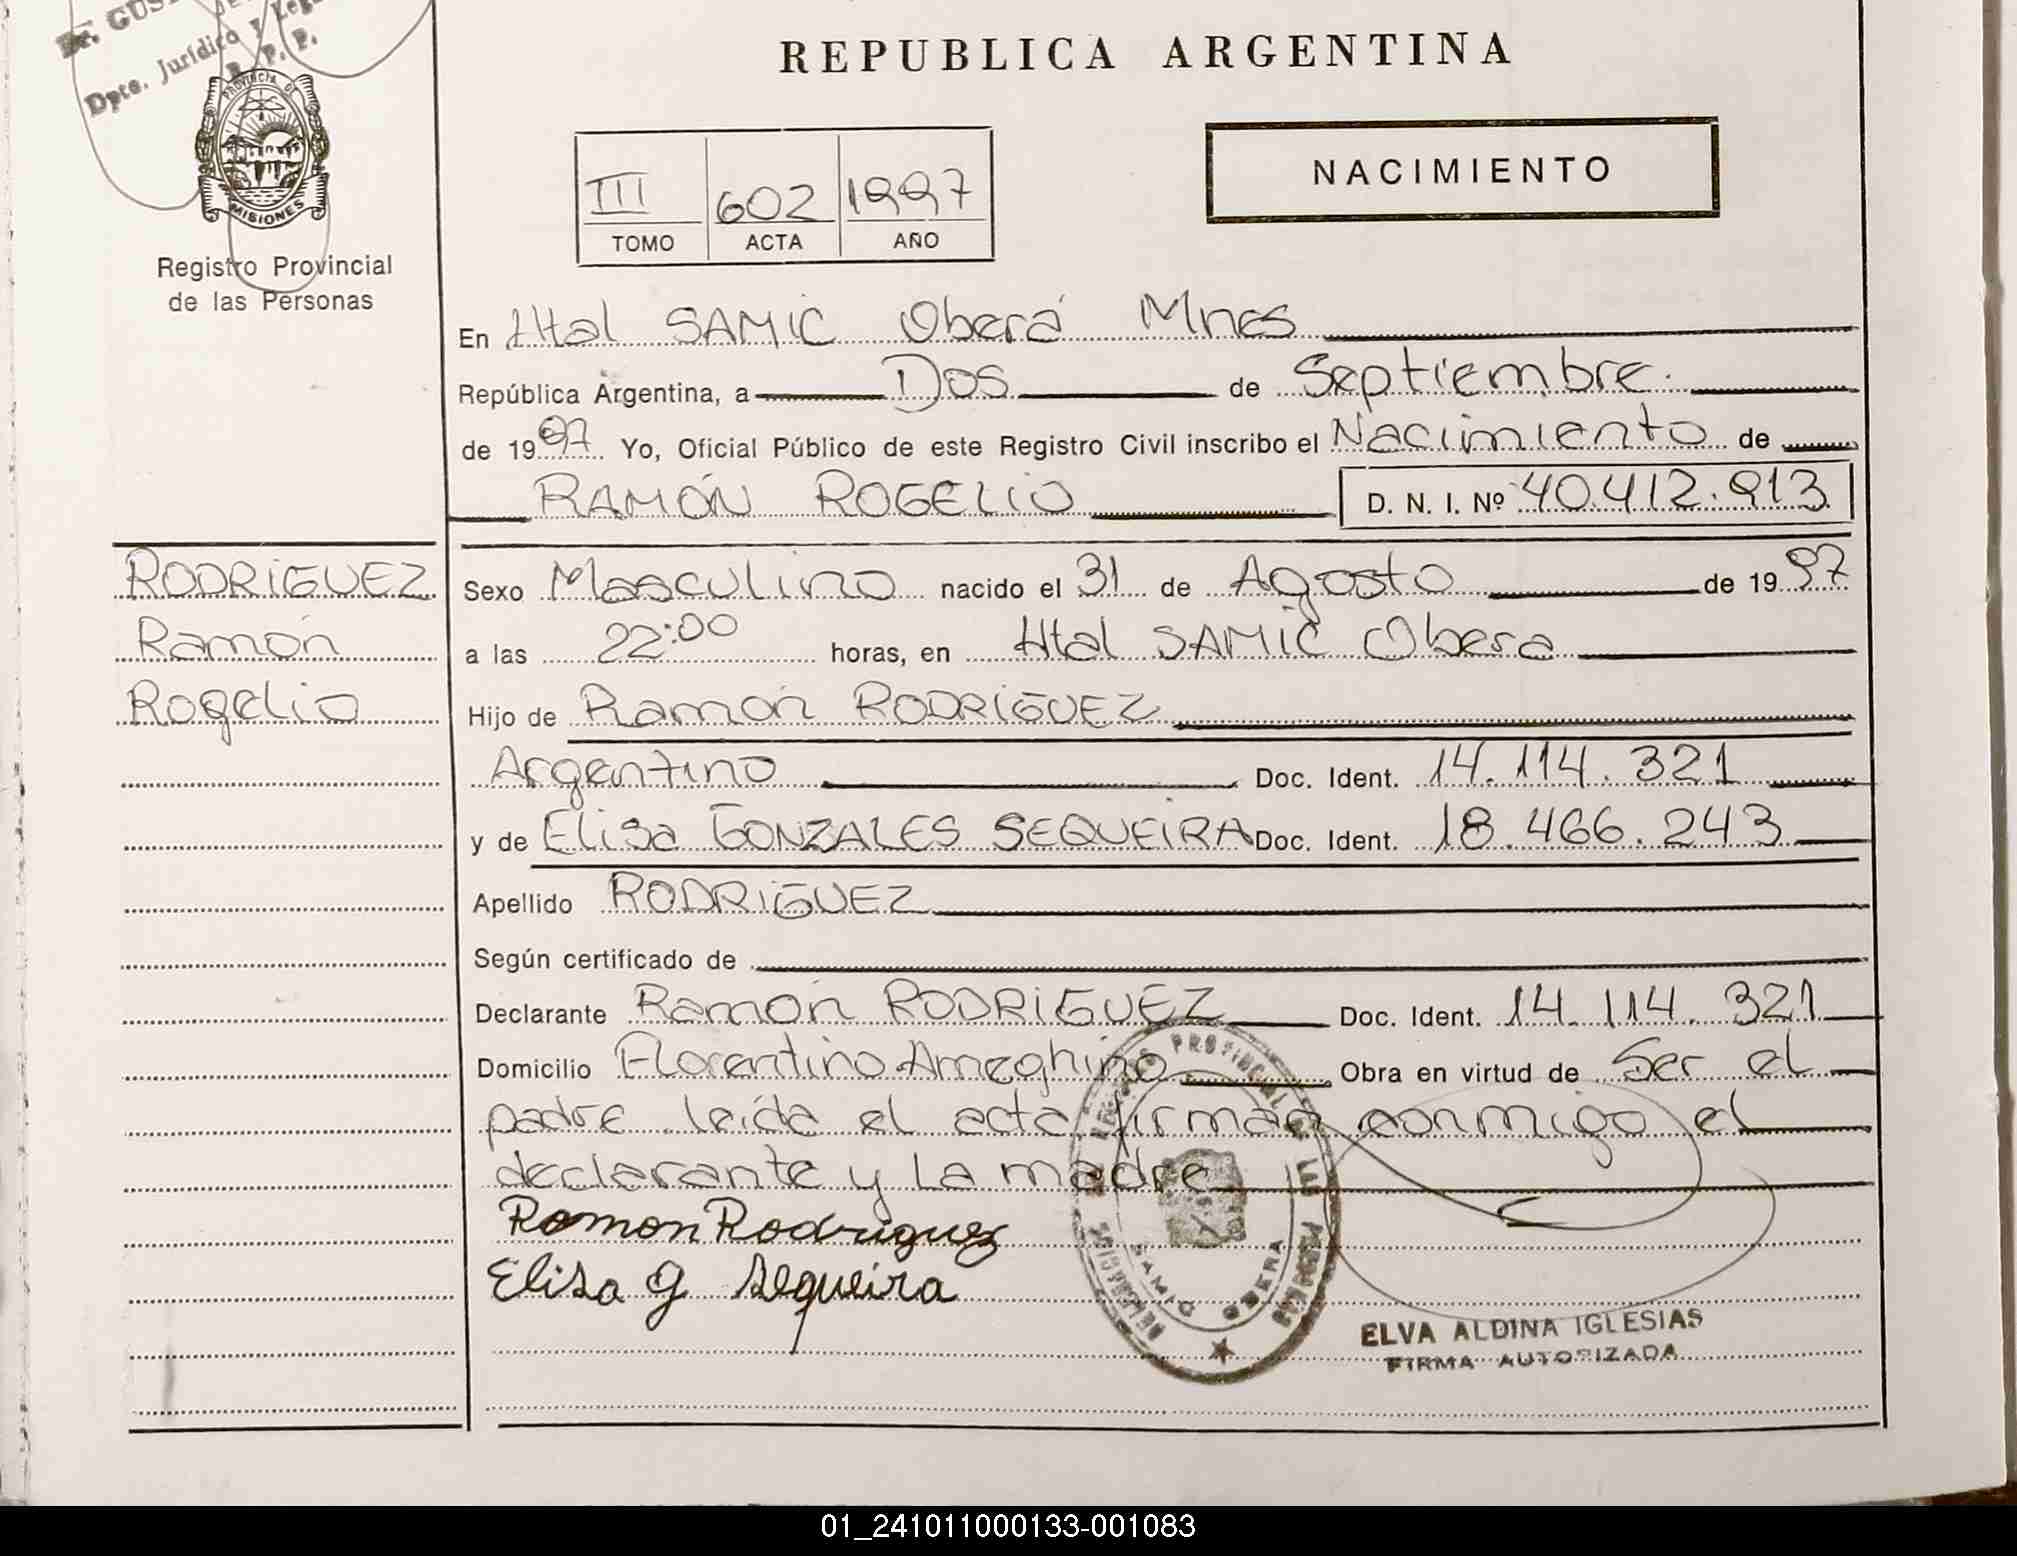 Dpto. Jurídico y
R. P. P.
PROVINCIA DE
MISIONES
Registro Provincial
de las Personas
REPUBLICA ARGENTINA
III 602 1997
TOMO ACTA AÑO
NACIMIENTO
En Htal SAMIC Oberá Mnes
República Argentina, a Dos de Septiembre.
de 1997 Yo, Oficial Público de este Registro Civil inscribo el Nacimiento de
RAMÓN ROGELIO D. N. I. Nº 40.412.913
RODRIGUEZ
Ramón
Rogelio
Sexo Masculino nacido el 31 de Agosto de 1997
a las 22:00 horas, en Htal SAMIC Obera
Hijo de Ramón RODRIGUEZ
Argentino Doc. Ident. 14.114.321
y de Elisa GONZALES SEQUEIRA Doc. Ident. 18.466.243
Apellido RODRIGUEZ
Según certificado de
Declarante Ramón RODRIGUEZ Doc. Ident. 14.114.321
Domicilio Florentino Ameghino Obra en virtud de Ser el
padre leída el acta firman conmigo el
declarante y La madre
Ramon Rodriguez
Elisa G Sequeira
PROVINCIAL DE LAS PERSONAS
SAMIC OBERA
ELVA ALDINA IGLESIAS
FIRMA AUTORIZADA
01_241011000133-001083